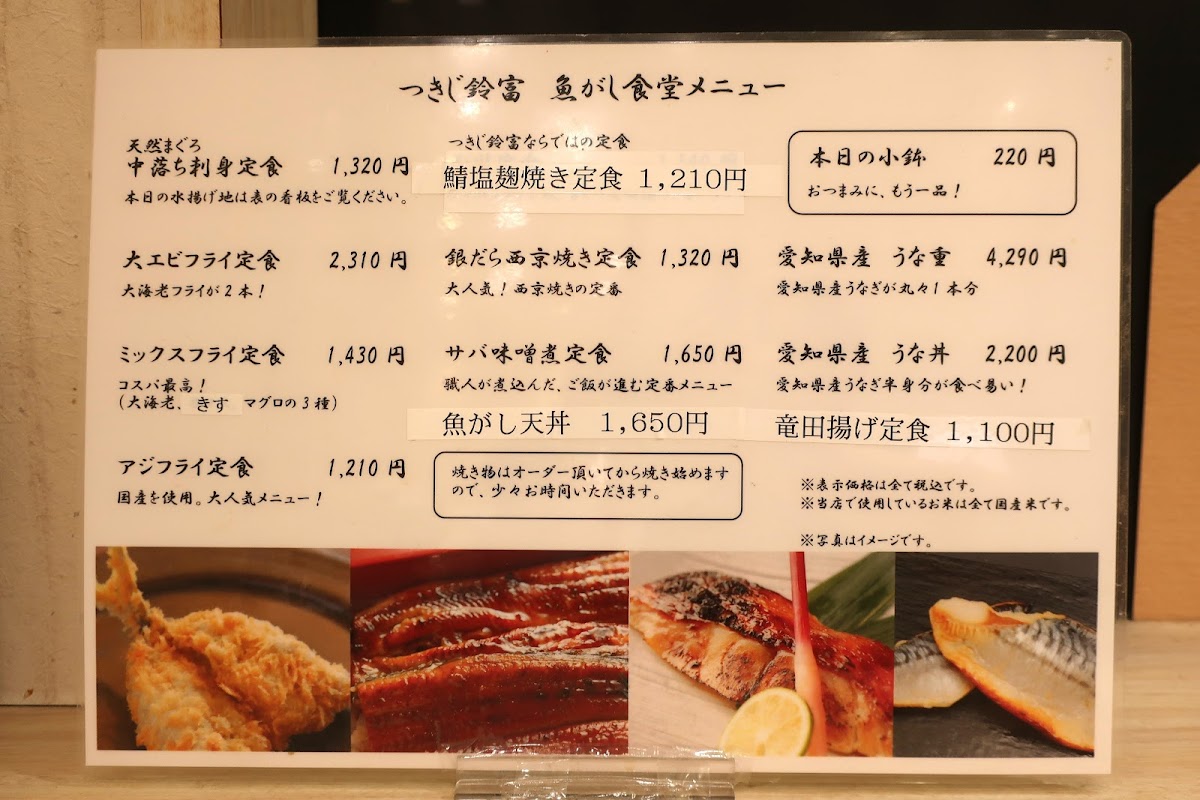 つきじ鈴富 魚がし食堂メニュー
天然まぐろ
中落ち刺身定食 1,320 円
本日の水揚げ地は表の看板をご覧ください。
大エビフライ定食 2,310 円
大海老フライが2本！
ミックスフライ定食 1,430 円
コスパ最高！
（大海老、きす マグロの3種）
アジフライ定食 1,210 円
国産を使用。大人気メニュー！
つきじ鈴富ならではの定食
鯖塩麹焼き定食 1,210円
銀だら西京焼き定食 1,320 円
大人気！西京焼きの定番
サバ味噌煮定食 1,650 円
職人が煮込んだ、ご飯が進む定番メニュー
魚がし天丼 1,650円
焼き物はオーダー頂いてから焼き始めます
ので、少々お時間いただきます。
本日の小鉢 220 円
おつまみに、もう一品！
愛知県産 うな重 4,290 円
愛知県産うなぎが丸々1本分
愛知県産 うな丼 2,200 円
愛知県産うなぎ半身分が食べ易い！
竜田揚げ定食 1,100円
※表示価格は全て税込です。
※当店で使用しているお米は全て国産米です。
※写真はイメージです。